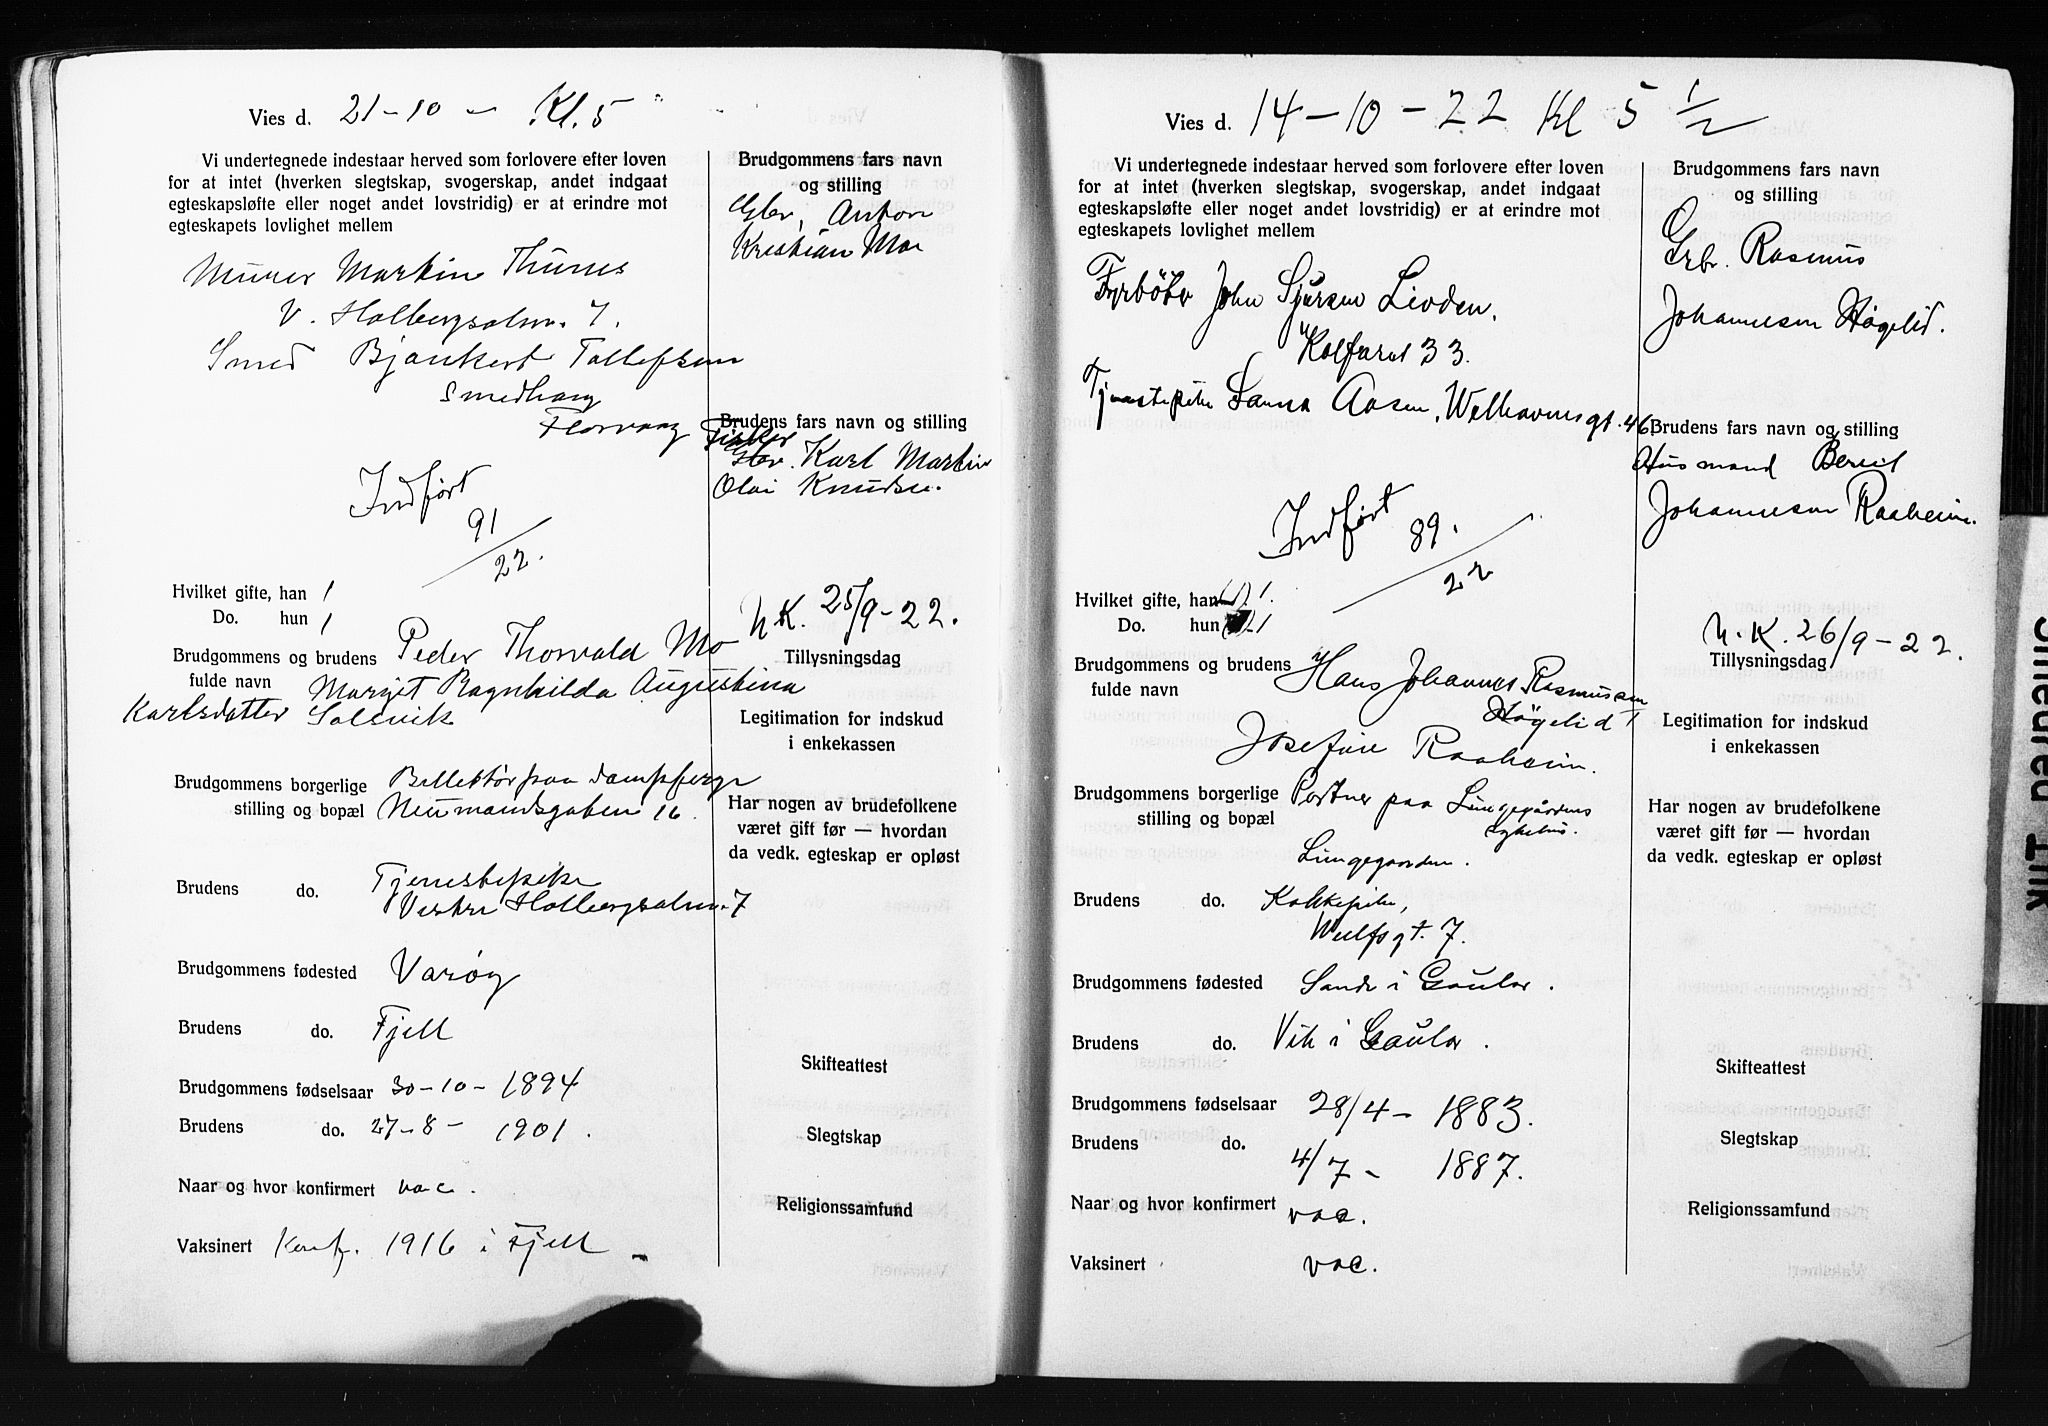 Vies d. 21-10 - Kl. 5
Vi undertegnede indestaar herved som forlovere efter loven
for at intet (hverken slegtskap, svogerskap, andet indgaat
egteskapsløfte eller noget andet lovstridig) er at erindre mot
egteskapets lovlighet mellem
Murer Martin Thunes
V. Holbergsalm. 7.
Smed Bjankert Tollefsen
Smedhaug
Florvaag
Indført
91/22.
Hvilket gifte, han 1
Do. hun 1
Brudgommens og brudens Peder Thorvald Mo
fulde navn Margit Ragnhilda Augustina
Karlsdatter Solsvik
Brudgommens borgerlige Billettør paa dampferge
stilling og bopæl Neumandsgaten 16.
Brudens do. Tjenestepike
Vestre Holbergsalm. 7
Brudgommens fødested Varøy
Brudens do. Fjell
Brudgommens fødselsaar 30-10- 1894
Brudens do. 27-8- 1901.
Naar og hvor konfirmert vac.
Vaksinert Konf. 1916 i Fjell
Brudgommens fars navn
og stilling
Gbr. Anton
Kristian Mo
Brudens fars navn og stilling
Fisker
Gbr. Karl Martin
Olai Knudsen.
N.K. 25/9-22.
Tillysningsdag
Legitimation for indskud
i enkekassen
Har nogen av brudefolkene
været gift før — hvordan
da vedk. egteskap er opløst
Skifteattest
Slegtskap
Religionssamfund
Vies d. 14-10-22 Kl 5 1/2
Vi undertegnede indestaar herved som forlovere efter loven
for at intet (hverken slegtskap, svogerskap, andet indgaat
egteskapsløfte eller noget andet lovstridig) er at erindre mot
egteskapets lovlighet mellem
Fyrbøter John Sjursen Livden,
Kalfaret 33.
Tjenestepike Sanna Aasen, Welhavensgt. 46
Indført
89./22
Hvilket gifte, han 1.
Do. hun 1
Brudgommens og brudens Hans Johannes Rasmussen
fulde navn Høgelid
Josefine Raaheim.
Brudgommens borgerlige Portner paa Lungegårdens
stilling og bopæl sykehus.
Lungegaarden.
Brudens do. Kokkepike,
Wulfsgt. 7.
Brudgommens fødested Sande i Gaular.
Brudens do. Vik i Gaular.
Brudgommens fødselsaar 28/4- 1883.
Brudens do. 4/7- 1887.
Naar og hvor konfirmert vac.
Vaksinert vac.
Brudgommens fars navn
og stilling
Gbr. Rasmus
Johannesen Høgelid.
Brudens fars navn og stilling
Husmand Bereit
Johannesen Raaheim.
N.K. 26/9-22.
Tillysningsdag
Legitimation for indskud
i enkekassen
Har nogen av brudefolkene
været gift før — hvordan
da vedk. egteskap er opløst
Skifteattest
Slegtskap
Religionssamfund
Smeared Ink